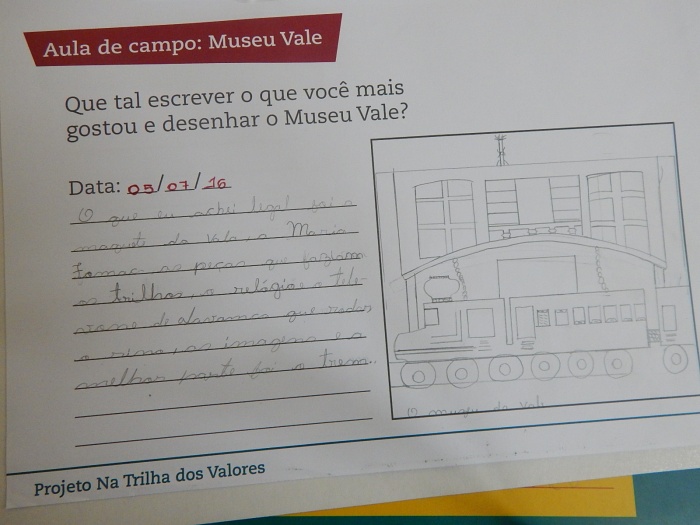 Aula de campo: Museu Vale
Que tal escrever o que você mais
gostou e desenhar o Museu Vale?
Data: 05/07/16
O que eu achei legal foi a
maquete da Vale, a Maria
Fumac as peças que
os trilhos, o relógio e tele-
de que
o as imagens e a
melhor parte foi o trem.
O museu da Vale
Projeto Na Trilha dos Valores